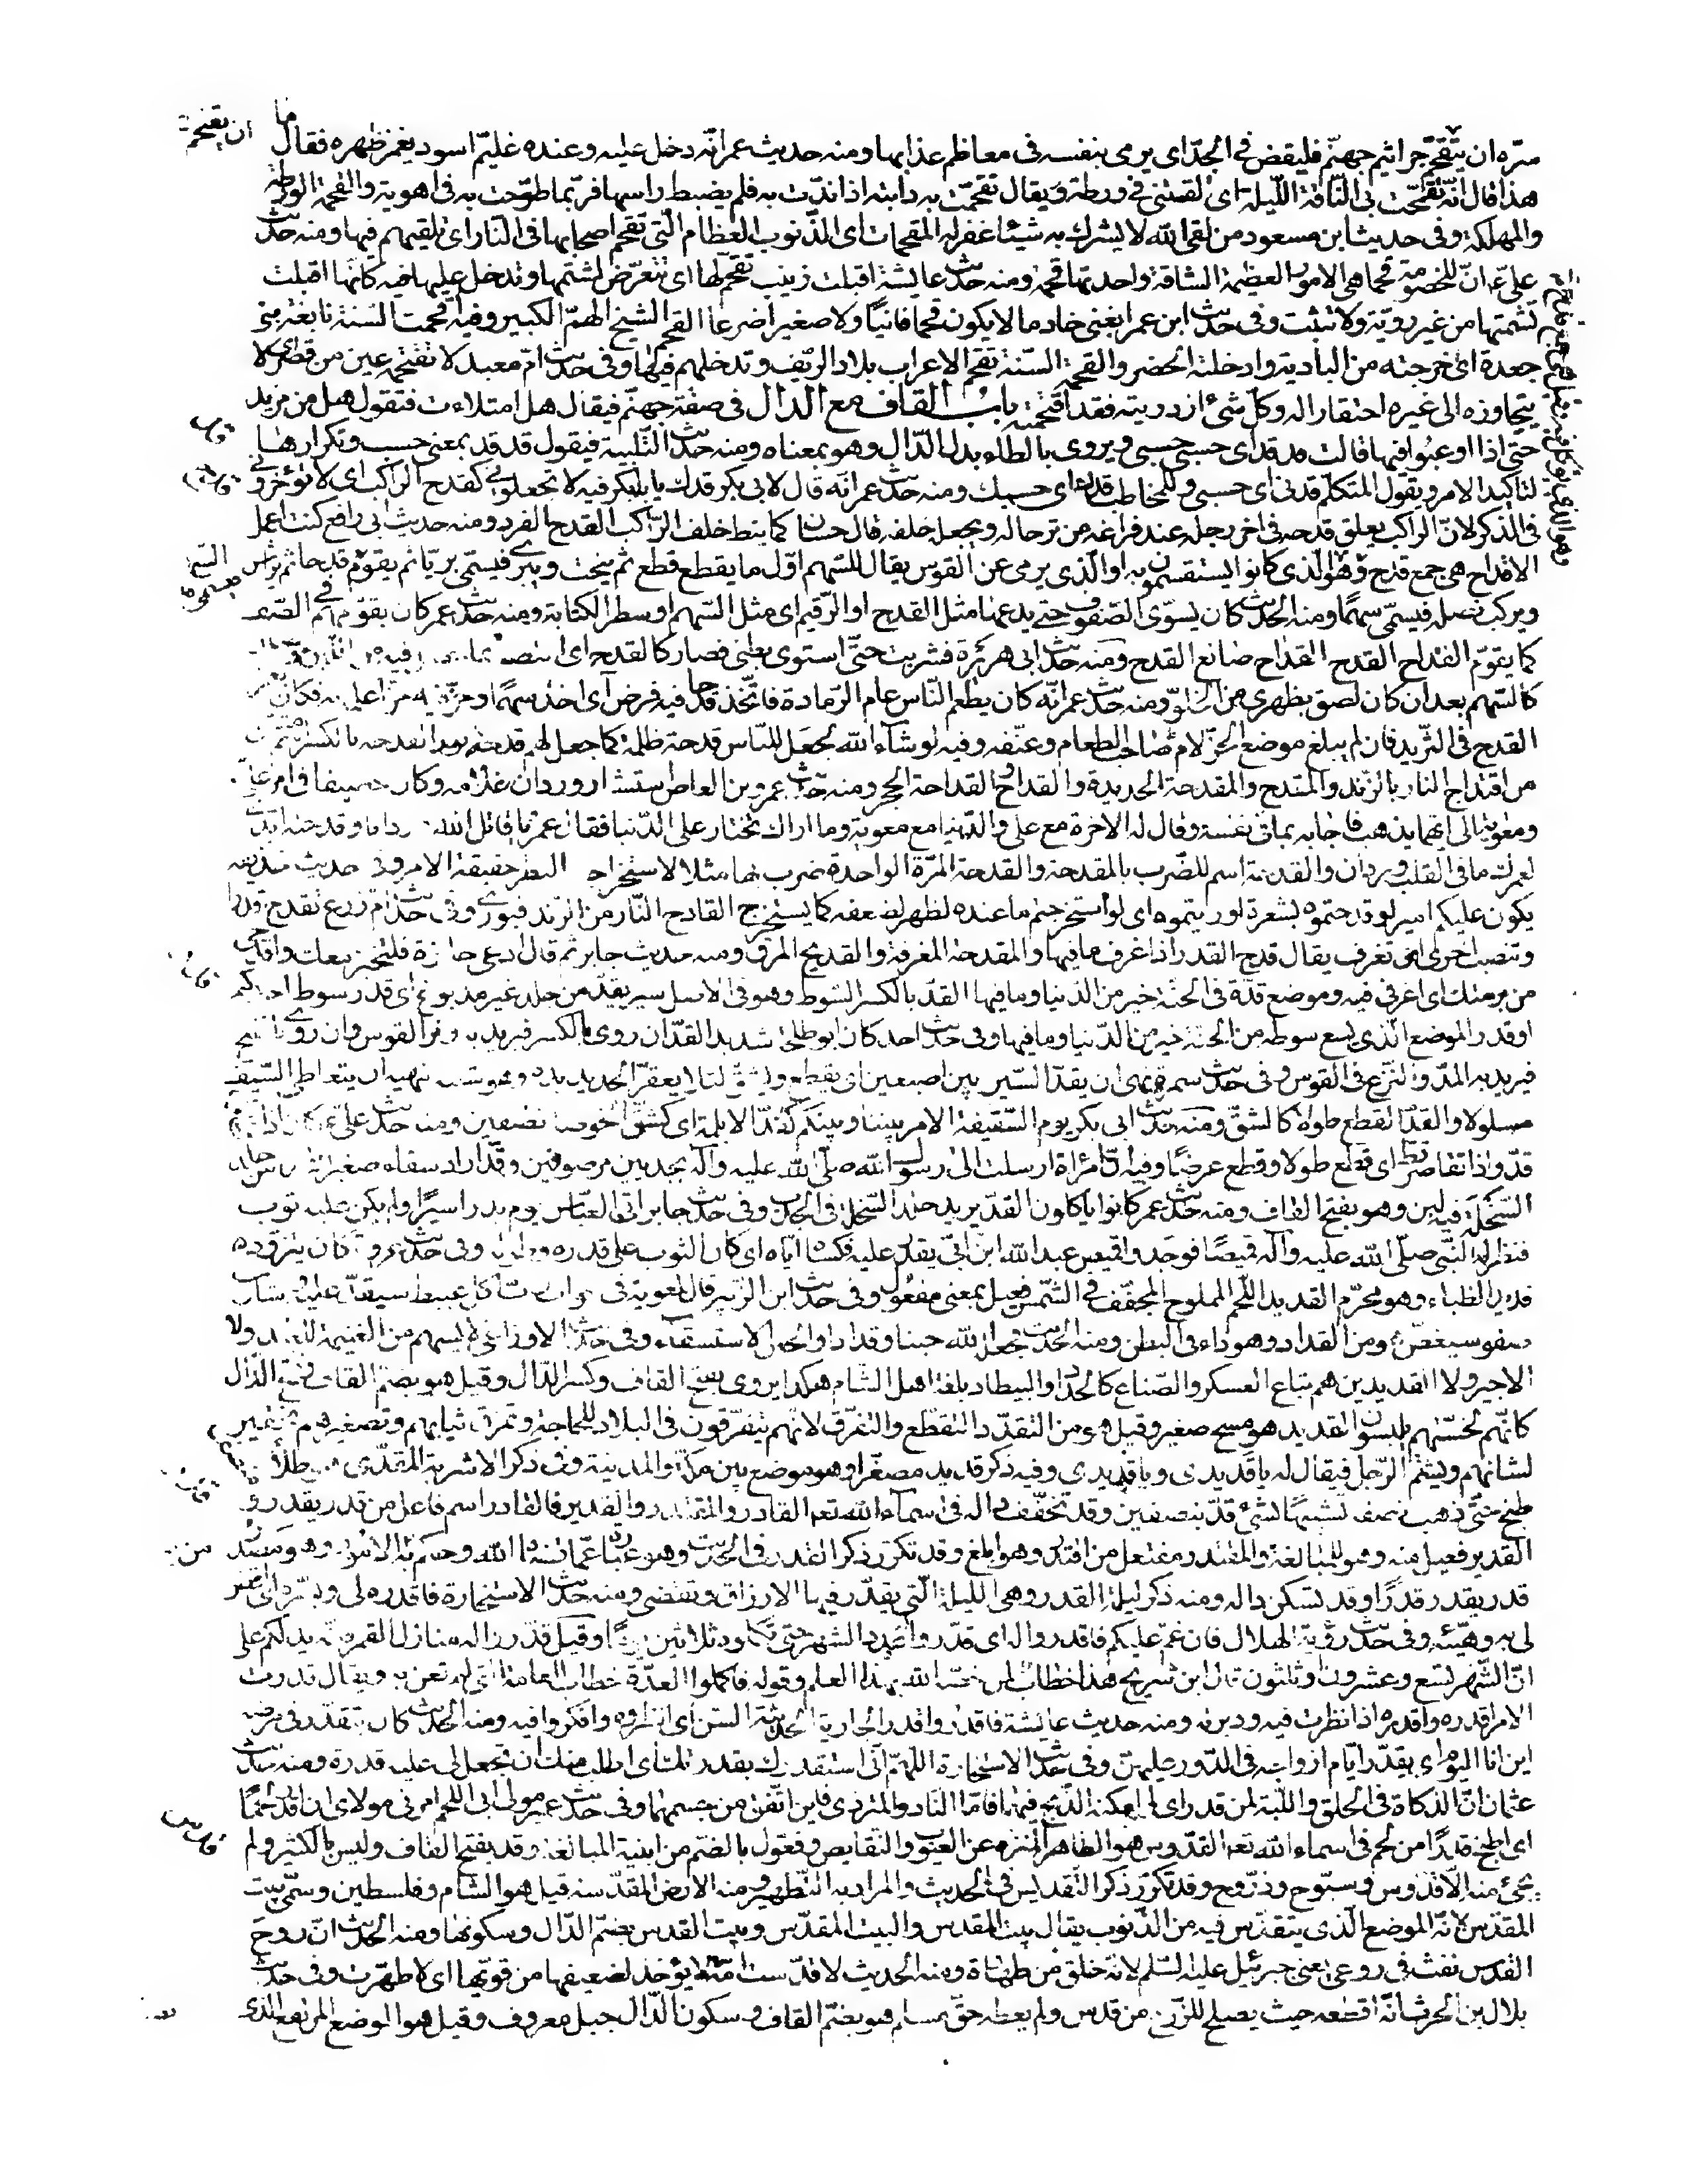 سرّه ان يتقحّم جراثيم جهنّم فليقض في الجدّ اى يرمى بنفسه فى معاظم عذابها ومنه حديث عمر انّه دخل عليه وعنده غليّم اسود يغمز ظهره فقال ما
هذا قال انّه تقحّمت بى النّاقة اللّيلة اى القتنى فى ورطة ويقال تقحّمت به دابته اذا ندّت به فلم يضبط راسها فربّما طوّحت به فى اهوية والقحمة الورطة
والمهلكة وفى حديث ابن مسعود من لقى الله لا يشرك به شيئا غفر له المقحمات اى الذّنوب العظام الّتى تقحم اصحابها فى النّار اى تلقيهم فيها ومنه حديث
علىّ ع انّ للخصومة قحما هى الامور العظيمة الشاقة واحدتها قحمة ومنه حديث عايشة اقبلت زينب تقحّم لها اى تتعرّض لشتمها وتدخل عليها فيه كانّها اقبلت
تشتمها من غير رويّة ولا تثبت وفى حديث ابن عمر ابغنى خادما لا يكون قحما فانيًا ولا صغيرا ضرعا القحم الشيخ الهمّ الكبير وفيه اقحمت السّنة نابغة بنى
جعدة اى اخرجته من البادية وادخلته الحضر والقحمة السّنة تقحم الاعراب بلاد الرّيف وتدخلهم فيها وفى حديث امّ معبد لا تقتحمه عين من قصر اى لا
يتجاوزه الى غيره احتقارا له وكلّ شئ ازدريته فقد اقتحمته باب القاف مع الدال فى صفة جهنّم فيقال هل امتلاءت فتقول هل من مزيد
حتى اذا اوعبوا فيها قالت قد قد اى حسبى حسبى ويروى بالطاء بدل الدّال وهو بمعناه ومنه حديث التّلبية فيقول قد قد بمعنى حسب وتكرارها
لتاكيد الامر ويقول المتكلّم قدنى اى حسبى وللمخاطب قدك اى حسبك ومنه حديث عمر انّه قال لابى بكر قدك يا بابكر فيه لا تجعلونى كقدح الراكب اى لا تؤخّرونى
فى الذّكر لانّ الراكب يعلق قدحه فى اخر رحله عند فراغه من ترحاله ويجعله خلفه قال حسان كما ينط خلف الرّاكب القدح الفرد ومنه حديث ابى رافع كنت اعمل
الاقداح هى جمع قدح وهو الّذى كانوا يستقسمون به او الّذى يرمى عن القوس يقال للسّهم اوّل ما يقطع قطع ثم ينحت ويبرى فيسمّى بريّا ثم يقوّم قدحا ثم يراش
ويركب نصله فيسمّى سهمًا ومنه الحديث كان يسوّى الصّفوف حتى يدعها مثل القدح او الرّقيم اى مثل السّهم او سطر الكتابة ومنه حديث عمر كان يقوّمهم فى الصّف
كما يقوّم القداح القدح القداح صانع القدح ومنه حديث ابى هريرة فشربت حتّى استوى بطنى فصار كالقدح اى انتصب
كالسّهم بعد ان كان لصق بظهرى من الخلوّ ومنه حديث عمر انّه كان يطعم النّاس عام الرّمادة فاتّخذ قدحا فيه فرض اى اخذ سهمًا وحزّ فيه حزّا
القدح فى الثّريد فان لم يبلغ موضع الحزّ لام صاحب الطعام وعنّفه وفيه لو شاء الله لجعل للنّاس قدحة ظلمة كما جعل لهم قدحة نور القدحة بالكسر
من اقتداح النار بالزّند والمقدح والمقدحة الحديدة والقداح والقداحة الحجر ومنه حديث عمرو بن العاص استشار وردان غلامه وكان حصيفا فى امر علىّ
ومعوية الى ايّهما يذهب فاجابه بما فى نفسه وقال له الاخرة مع على والدّنيا مع معوية وما اراك تختار على الدّنيا فقال عمرو يا قاتل الله وردانا وقدحته ابدى
لعمرك ما فى القلب وردان والقدحة اسم للضّرب بالمقدحة والقدحة المرّة الواحدة ضرب بها مثلا لاستخراجه النظر حقيقة الامر وفى حديث حذيفه
يكون عليكم امير لو قدحتموه بشعرة اوريتموه اى لو استخرجتم ما عنده لظهر لضعفه كما يستخرج القادح النّار من الزّند فيورى وفى حديث امّ زرع تقدح قدرا
وتنصب اخرى اى تغرف يقال قدح القدر اذا غرف ما فيها والمقدحة المغرفة والقديح المرق ومنه حديث جابر ثم قال ادعى خابزة فلتخبز معك واقدحى
من برمتك اى اغرفى فيه وموضع قدّه فى الجنّة خير من الدّنيا وما فيها القدّ بالكسر السّوط وهو فى الاصل سير يقدّ من جلد غير مدبوغ اى قدر سوط احدكم
او قدر الموضع الّذى يسع سوطه من الجنّة خير من الدّنيا وما فيها وفى حديث احد كان ابو طلحة شديد القدّ ان روى بالكسر فيريد به وتر القوس وان روى بالفتح
فيريد به المدّ والنّزع فى القوس وفى حديث سمرة نهى ان يقدّ السّير بين اصبعين اى يقطع ويشقّ لئلا يعقر الحديد يده وهو شبيه نهيه ان يتعاطى السّيف
مسلولا والقدّ القطع طولا كالشقّ ومنه حديث ابى بكر يوم السّقيفة الامر بيننا وبينكم كقدّ الابلمة اى كشقّ الخوصة نصفين ومنه حديث علىّ ع كان اذا
قدّ واذا تقاصر قطّ اى قطع طولا وقطع عرضًا وفيه انّ امرأة ارسلت الى رسول الله صلّى الله عليه وآله بجديين مرضوفين وقدّ اراد سقاء صغيرا من جلد
السّخلة فيه لبن وهو بفتح القاف ومنه حديث عمر كانوا ياكلون القدّ يريد جلد السّخلة فى الجدب وفى حديث جابر اتى بالعبّاس يوم بدر اسيرًا ولم يكن عليه ثوب
فنظر له النّبى صلّى الله عليه وآله قميصًا فوجدوا قميص عبد الله ابن ابىّ يقدّ عليه فكساه ايّاه اى كان الثوب على قدره وطوله وفى حديث عروة كان يتزوّده
قديد الظباء وهو محرم القديد اللّحم المملوح المجفّف فى الشّمس فعيل بمعنى مفعول وفى حديث ابن الزّبير قال لمعوية فى جواب ربّ آكل عبيط سيقدّ عليه وشارب
صفو سيغصّ هو من القداد وهو داء فى البطن ومنه الحديث فجعله الله حبنا وقدادا والحبن الاستسقاء وفى حديث الاوزاعى لا يسهم من الغنيمة للعبد ولا
الاجير ولا القديديين هم تبّاع العسكر والصّناع كالحدّاد والبيطار بلغة اهل الشام هكذا يروى بفتح القاف وكسر الدّال وقيل هو بضمّ القاف وفتح الدّال
كانّهم لخسّتهم يلبسون القديد هو مسح صغير وقيل هو من التقدّد التقطّع والتفرّق لانّهم يتفرّقون فى البلاد للحاجة وتمزّق ثيابهم وتصغيرهم تحقير
لشانهم ويشتم الرّجل فيقال له يا قديدى ويا قديدى وفيه ذكر قديد مصغّرا وهو موضع بين مكّة والمدينة وفى ذكر الاشربة المقدّى هو طلاء
طبخ حتّى ذهب نصفه تشبيهًا بشئ قدّ بنصفين وقد تخفّف داله فى اسماء الله تعه القادر والمقتدر والقدير فالقادر اسم فاعل من قدر يقدر و
القدير فعيل منه وهو للمبالغة والمقتدر مفتعل من اقتدر وهو ابلغ وقد تكرّر ذكر القدر فى الحديث وهو عبارة عمّا قضاه الله وحكم به من الامور وهو مصدر
قدر يقدر قدرًا وقد تسكن داله ومنه ذكر ليلة القدر وهى الليلة الّتى يقدّر فيها الارزاق وتقضى ومنه حديث الاستخارة فاقدره لى ويسّره اى اقض
لى به وهيّئه وفى حديث رؤية الهلال فان غمّ عليكم فاقدروا له اى قدّروا عدد الشهر حتى تكملوه ثلاثين يومًا وقيل قدّروا له منازل القمر فانه يدلّكم على
انّ الشّهر تسع وعشرون او ثلثون قال ابن شريح هذا خطاب لمن خصّه الله بهذا العلم وقوله فاكملوا العدّة خطاب للعامة التى لم تعن به ويقال قدرت
الامر اقدره واقدره اذا نظرت فيه ودبرته ومنه حديث عايشة فاقدروا قدر الجارية الحديثة السّن اى انظروه وافكروا فيه ومنه الحديث كان يتقدّر فى مرضه
اين انا اليوم اى يقدّر ايّام ازواجه فى الدّور عليهنّ وفى حديث الاستخارة اللّهمّ انّى استقدرك بقدرتك اى اطلب منك ان تجعل لى عليه قدرة ومنه حديث
عثمان انّ الذكاة فى الحلق واللّبة لمن قدر اى لمن امكنه الذّبح فيهما فامّا النّاد والمتردّى فاين اتّفق من جسمهما وفى حديث عمير مولى ابى اللحم امرنى مولاى ان اقدر لحمًا
اى اطبخ قدرًا من لحم فى اسماء الله تعه القدّوس هو الطاهر المنزّه عن العيوب والنّقايص وفعّول بالضم من ابنية المبالغة وقد يفتح القاف وليس بالكثير ولم
يجئ منه الّا قدّوس وسبّوح وذرّوح وقد تكرّر ذكر التّقديس فى الحديث والمراد به التّطهير ومنه الارض المقدّسة قيل هو الشام وفلسطين وسمّى بيت
المقدس لانّه الموضع الّذى يتقدّس فيه من الذّنوب يقال بيت المقدس والبيت المقدّس وبيت القدس بضمّ الدّال وسكونها ومنه الحديث انّ روح
القدس نفث فى روعى يعنى جبرئيل عليه السّلم لانّه خلق من طهارة ومنه الحديث لا قدّست امّة لا يؤخذ لضعيفها من قويّها اى لا طهّرت وفى حديث
بلال بن الحرث انّه اقطعه حيث يصلح للزّرع من قدس ولم يعطه حقّ مسلم هو بضمّ القاف وسكون الدّال جبل معروف وقيل هو الموضع المرتفع الذى